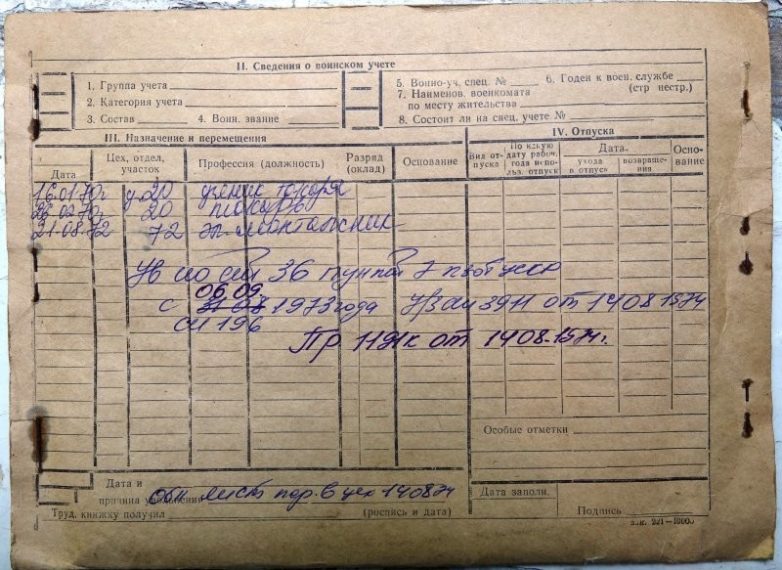 II. Сведения о воинском учете
1. Группа учета
2. Категория учета
3. Состав 4. Воин. звание
5. Военно-уч. спец. № 6. Годен к воен. службе
(стр нестр.)
7. Наименов. военкомата
по месту жительства
8. Состоит ли на спец. учете №
III. Назначение и перемещения
Дата
Цех, отдел, участок
Профессия (должность)
Разряд (оклад)
Основание
IV. Отпуска
Вид отпуска
По какую дату рабоч. года использ. отпуск
Дата
ухода в отпуск
возвращения
Основание
16.01.70г ц.20 ученик токаря
20 токарь
21.08.72 72 эл. монтажник
Ув по ст 36 пункт 7
06.09
с 1973 года от 14 08 1974
ст 196
Пр от 14 08. 1974г.
Особые отметки
Дата и
причина увольнения
лист 14 08 74
Труд. книжку получил (роспись и дата)
Дата заполн.
Подпись